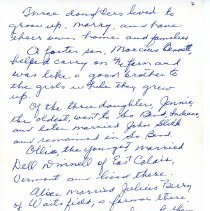 2
Three daughters lived to
grow up, marry, and have
their own home and families
A foster son, Marcius Bennett,
helped carry on the farm and
was like a good brother to
the girls while they grew
up.
Of the three daughters, Jennie,
the oldest, went to So. Bend, Indiana,
and later married John
and remained in So. Bend.
Ollie, the youngest married
Dell of East Calais,
Vermont and lived there.
Alice married Julius Berry
of Waitsfield, a farmer there